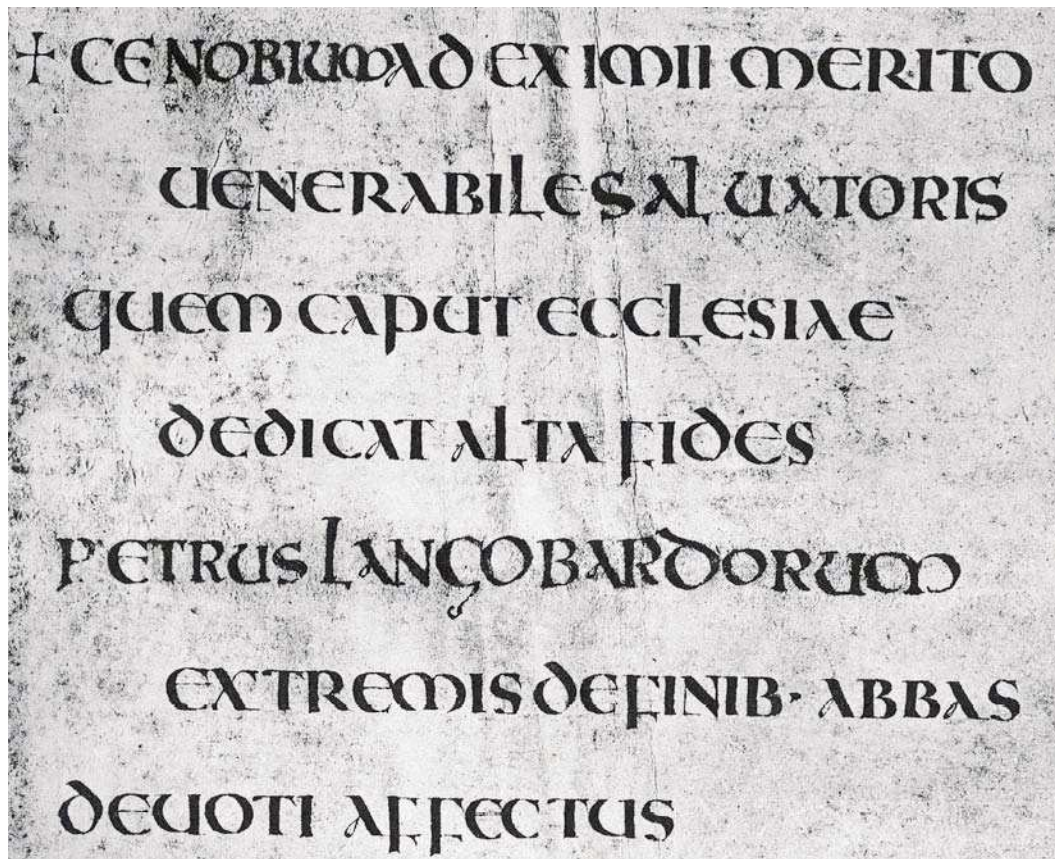 + CENOBIUM AD EXIMII MERITO
UENERABILE SALUATORIS
QUEM CAPUT ECCLESIAE
DEDICAT ALTA FIDES
PETRUS LANGOBARDORUM
EXTREMIS DE FINIB· ABBAS
DEUOTI AFFECTUS